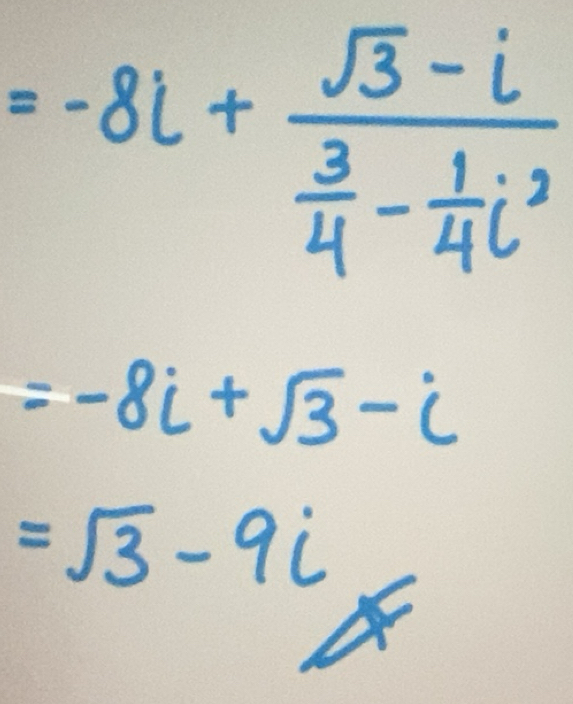 = -8i + (√3 - i)/(3/4 - 1/4 i²)
= -8i + √3 - i
= √3 - 9i